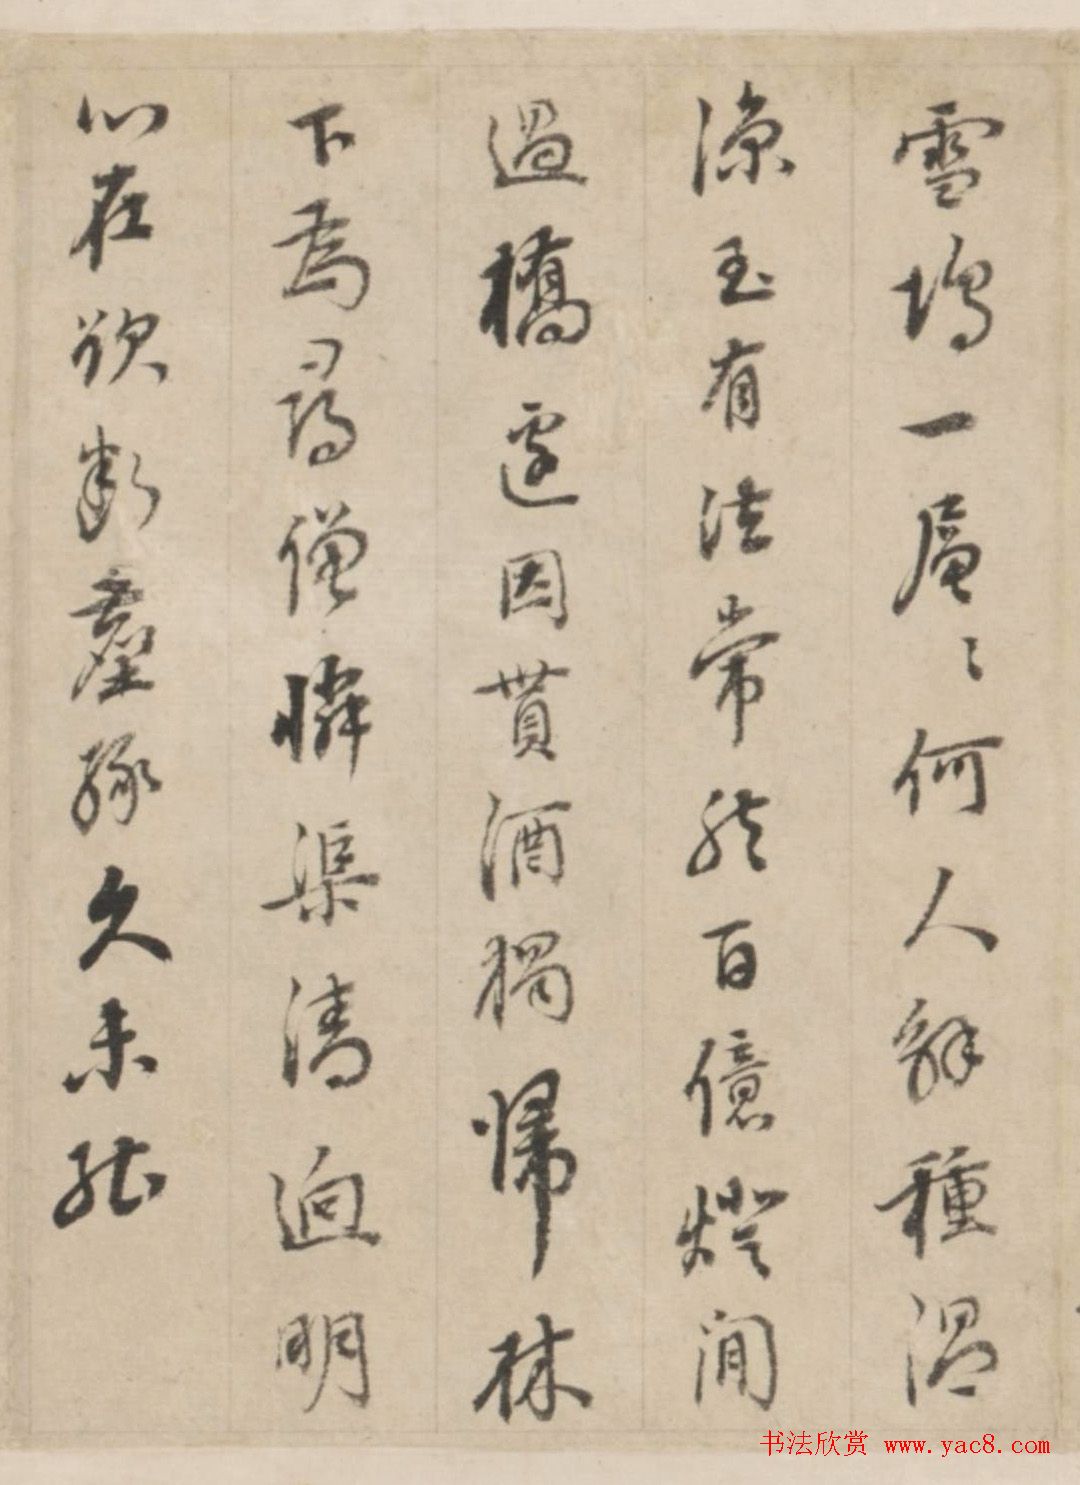 雪塢一扈〻何人解種溫
涼玉有法常然百億燈閒
過橋還因貰酒獨歸林
下為尋僧憐渠清迥明
心在欲斷塵緣久未能
书法欣赏 www.yac8.com